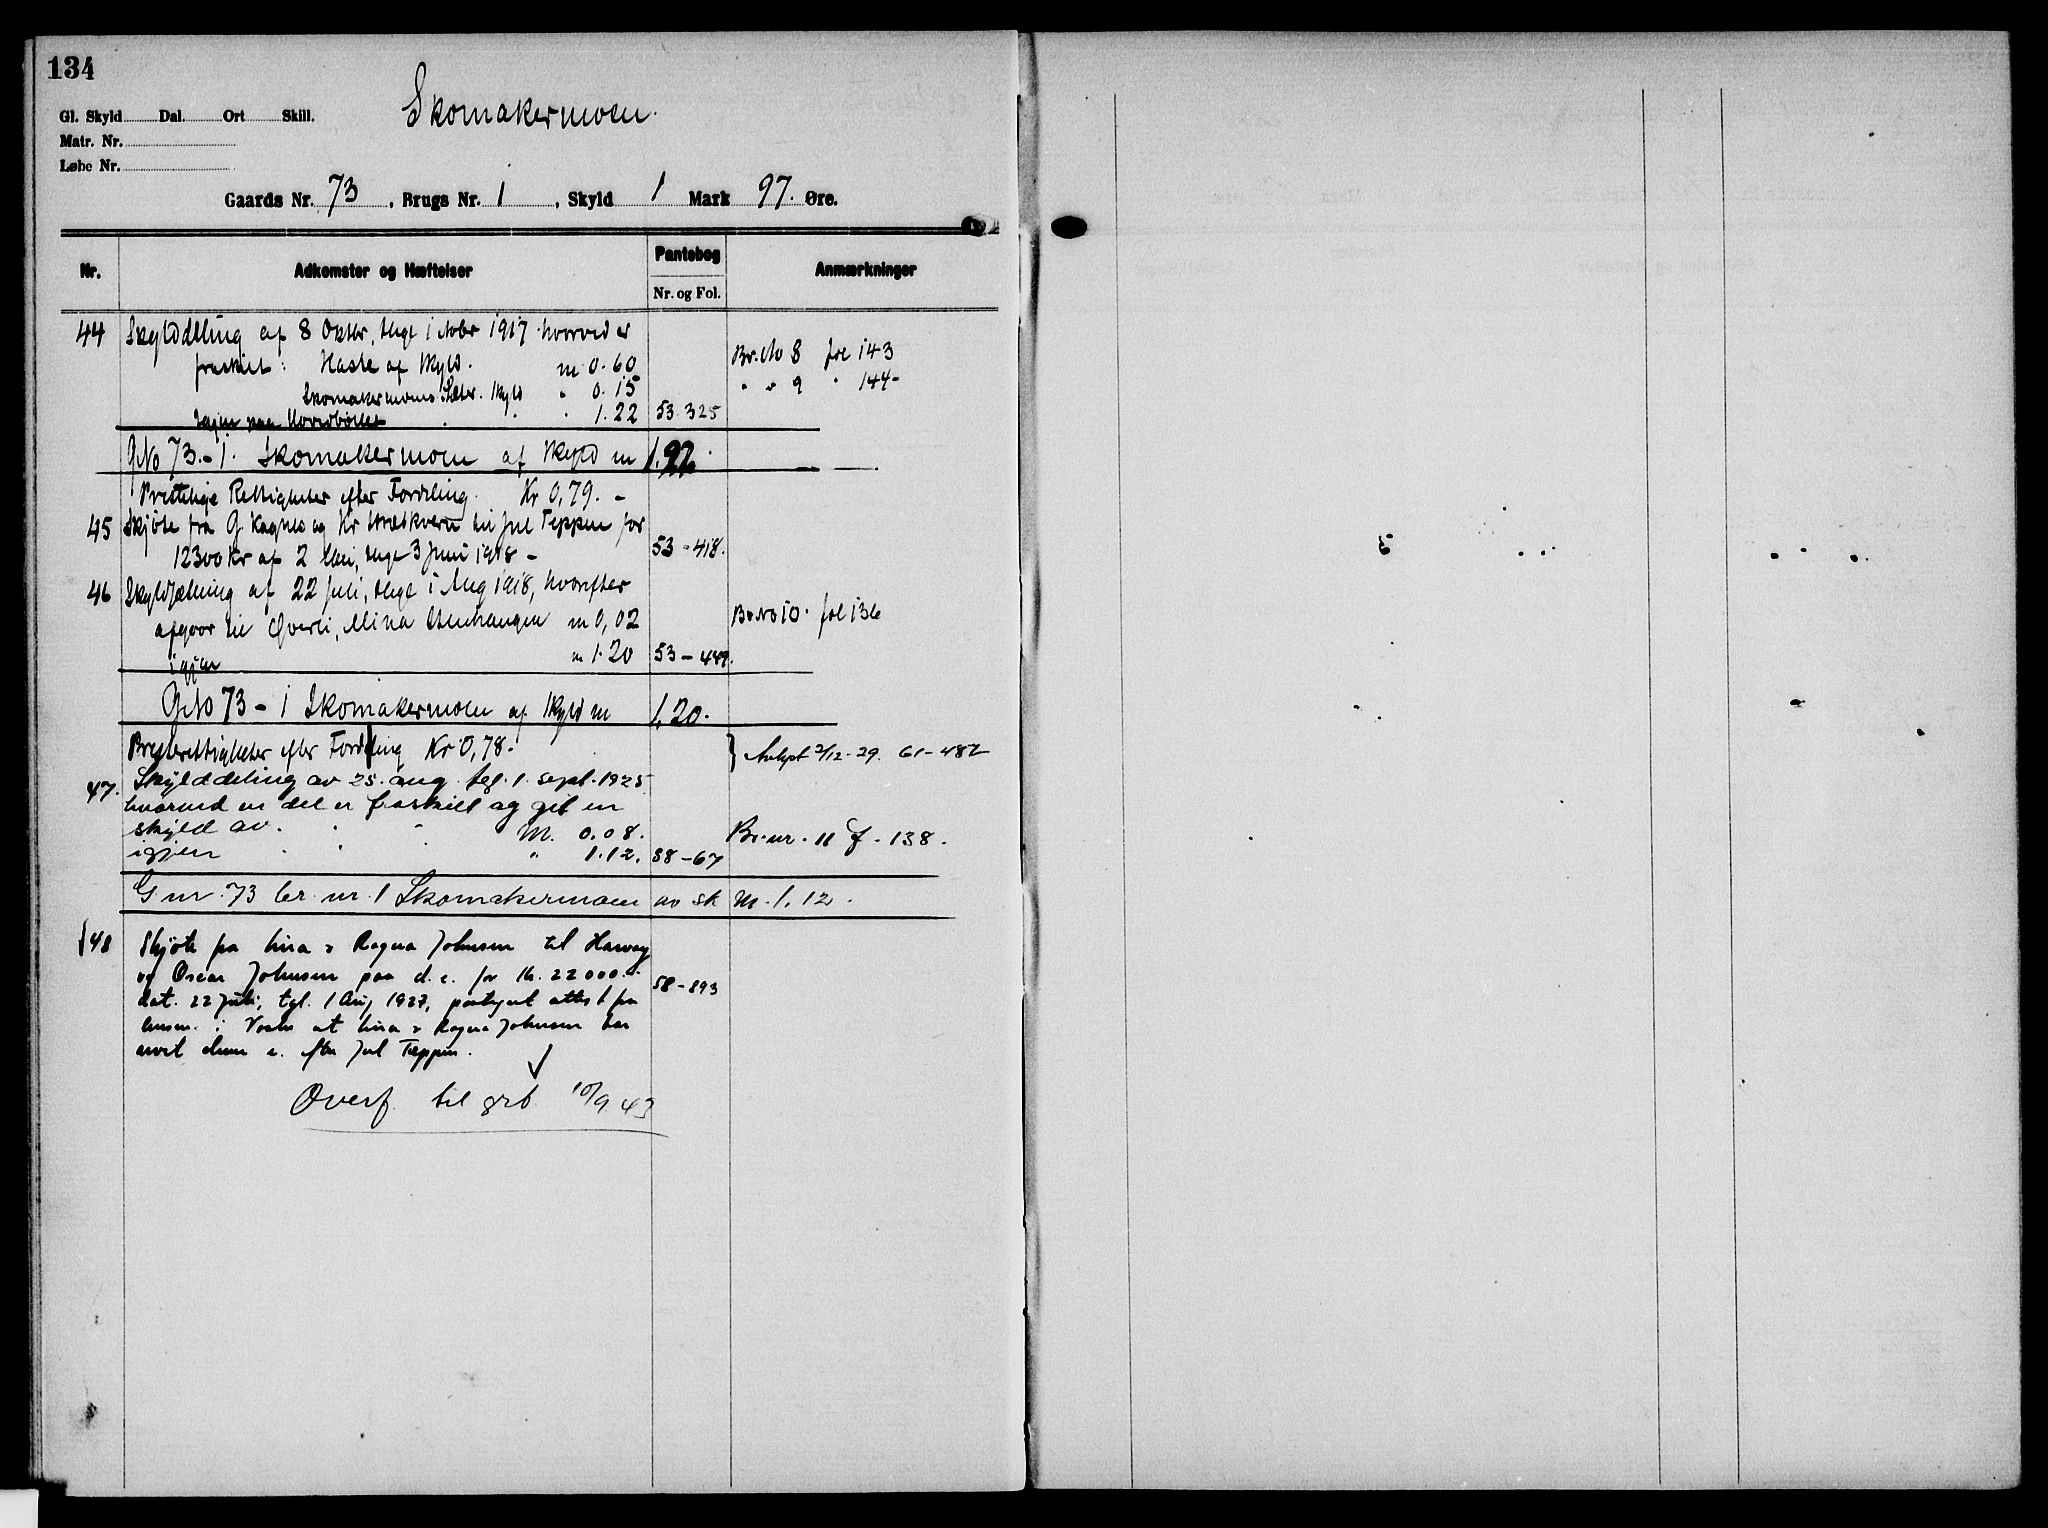 134
Skomakermoen.
Gl. Skyld Dal. Ort Skill.
Matr. Nr.
Løbe Nr.
Gaards Nr. 73, Brugs Nr. 1, Skyld 1 Mark 97. Øre.
Nr. Adkomster og Hæftelser Pantebog Anmærkninger
Nr. og Fol.
44 Skylddeling af 8 Oktbr, thgl 1 Novbr 1917 hvorved er
fraskilt: af Skyld. m 0.60 Br.No 8 fol 143
Skomakermoens Sæter. Skyld " 0.15 " " 9 " 144-
Igjen paa Hovedbølet " 1.22 53.325
GNo 73.-1. Skomakermoen af Skyld m
Prestelige Rettigheter efter Fordeling. Kr 0,79.-
45 Skjøte fra G og Kr til Jul Teppen for
12300 Kr af 2 Mai, thgl 3 Juni 1918- 53-418.
46 Skylddeling af 22 Juli, thgl 1 Aug 1918, hvorefter
afgaar til Øverli, Mina m 0,02 Br No 10. fol 136
igjen m 1.20 53-489.
GNo 73-1 Skomakermoen af Skyld m 1.20.
Presterettigheter efter Fordeling Kr 0,78. } Avkpt 2/12-29. 61-482
47. Skylddeling av 25. aug. tgl. 1. sept. 1925
hvorved en del er fraskilt og git en
skyld av. M. 0.08. Br.nr. 11 f. 138.
igjen " 1.12. 58-67
G nr. 73 br. nr. 1 Skomakermoen av sk M. 1.12.
48 Skjøte fra & Ragna Johnsen til Harvey
og Oscar Johnsen paa d. e. for Kr. 22000.-
dat. 22 Juli, tgl. 1 Aug 1927, attest fra 58-893
i at & Ragna Johnsen har
arvet denne e. efter Jul Teppen.
Overf. til grb. 10/9 43